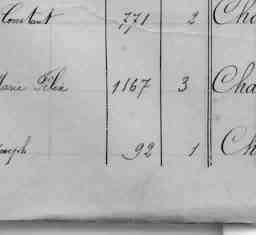 Constant 771 2 Cha
Marie Félix 1167 3 Cha
Joseph 92 1 Ch